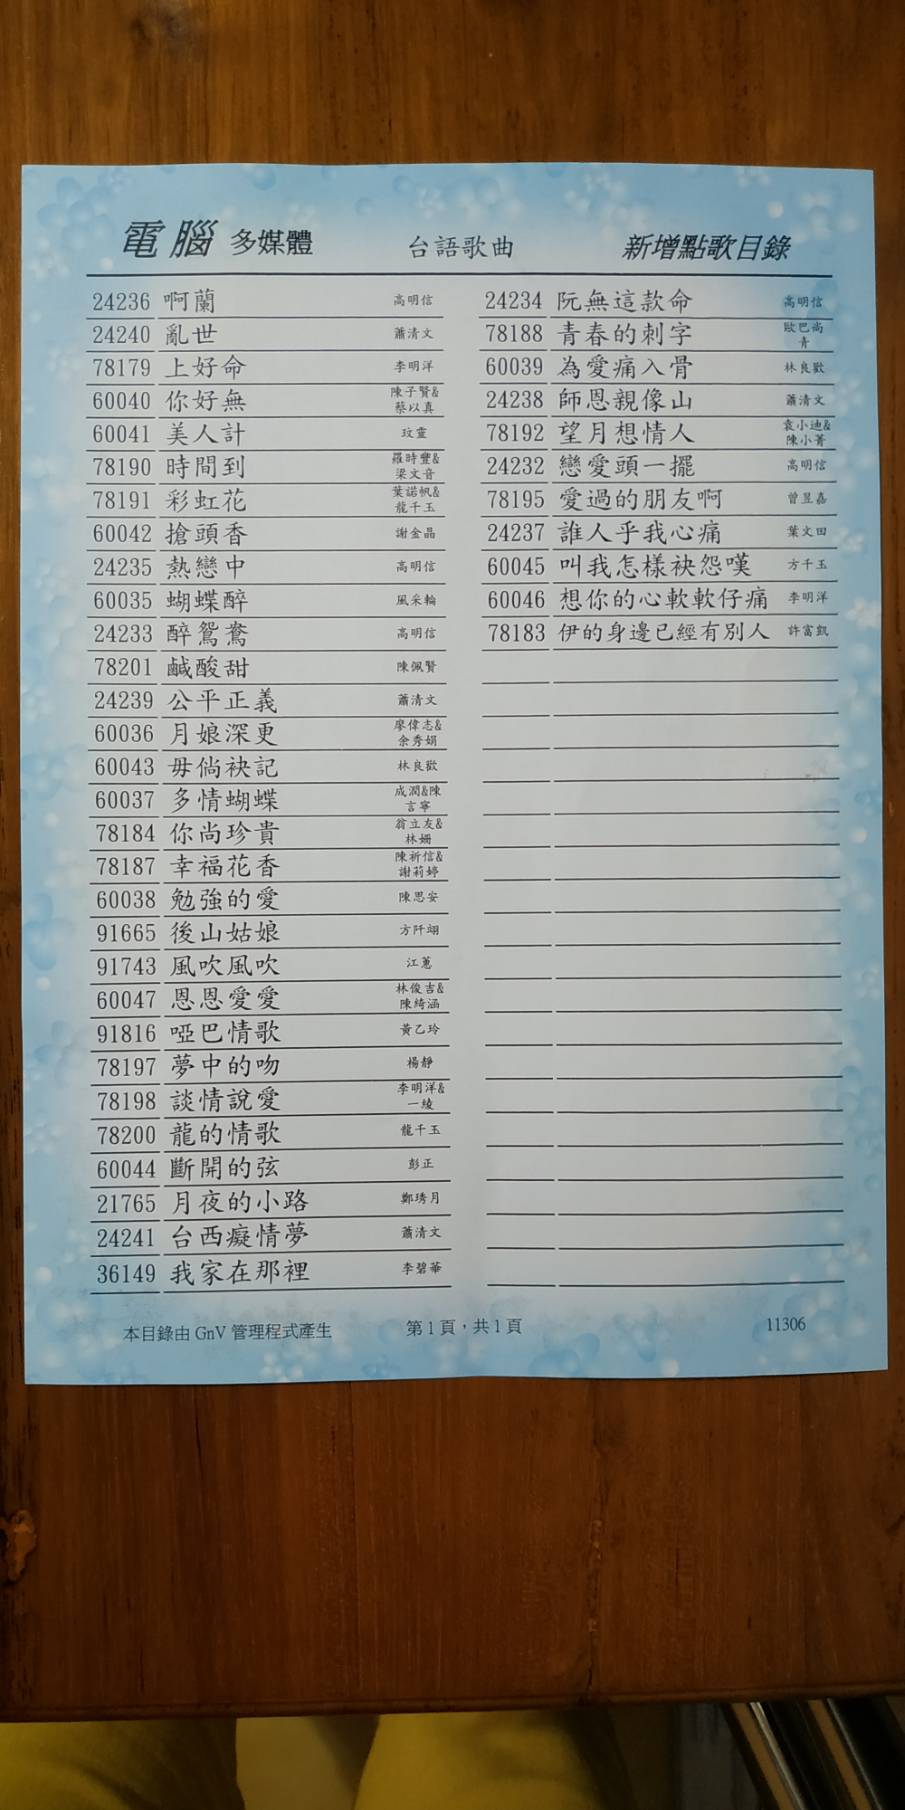 電腦 多媒體 台語歌曲 新增點歌目錄
24236 啊蘭 高明信
24240 亂世 蕭清文
78179 上好命 李明洋
60040 你好無 陳子賢&
蔡以真
60041 美人計 玟靈
78190 時間到 羅時豐&
梁文音
78191 彩虹花 葉諾帆&
龍千玉
60042 搶頭香 謝金晶
24235 熱戀中 高明信
60035 蝴蝶醉 風采輪
24233 醉鴛鴦 高明信
78201 鹹酸甜 陳佩賢
24239 公平正義 蕭清文
60036 月娘深更 廖偉志&
余秀娟
60043 毋倘袂記 林良歡
60037 多情蝴蝶 成潤&陳
言寧
78184 你尚珍貴 翁立友&
林姍
78187 幸福花香 陳祈信&
謝莉婷
60038 勉強的愛 陳思安
91665 後山姑娘 方阡翊
91743 風吹風吹 江蕙
60047 恩恩愛愛 林俊吉&
陳綺涵
91816 啞巴情歌 黃乙玲
78197 夢中的吻 楊靜
78198 談情說愛 李明洋&
一綾
78200 龍的情歌 龍千玉
60044 斷開的弦 彭正
21765 月夜的小路 鄭琇月
24241 台西癡情夢 蕭清文
36149 我家在那裡 李碧華
24234 阮無這款命 高明信
78188 青春的刺字 歐巴尚
青
60039 為愛痛入骨 林良歡
24238 師恩親像山 蕭清文
78192 望月想情人 袁小迪&
陳小菁
24232 戀愛頭一擺 高明信
78195 愛過的朋友啊 曾昱嘉
24237 誰人乎我心痛 葉文田
60045 叫我怎樣袂怨嘆 方千玉
60046 想你的心軟軟仔痛 李明洋
78183 伊的身邊已經有別人 許富凱
本目錄由 GnV 管理程式產生 第1頁，共1頁 11306